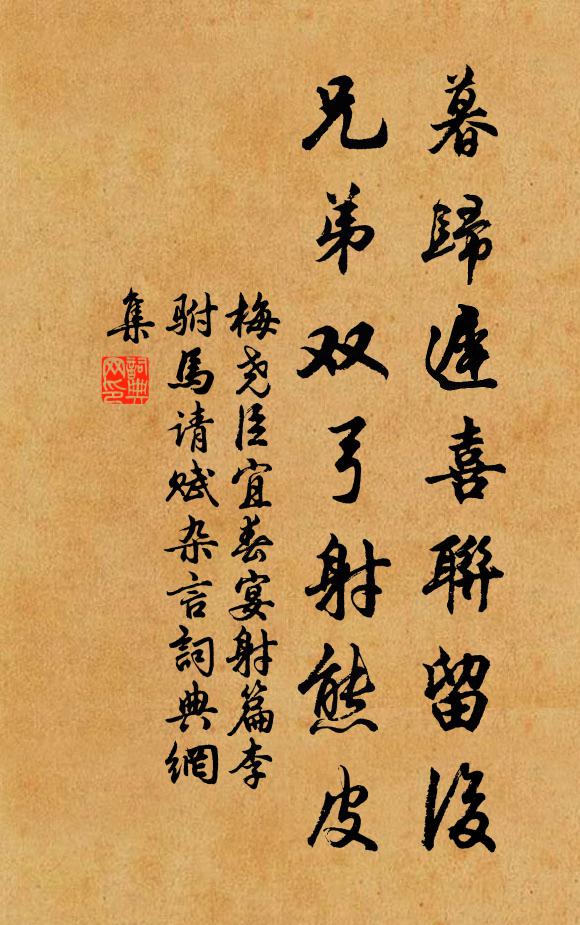 暮歸遲喜聯留後
兄弟双弓射熊皮
梅尧臣宜春宴射篇李
駙馬请赋杂言詞典網
集
詞典网印